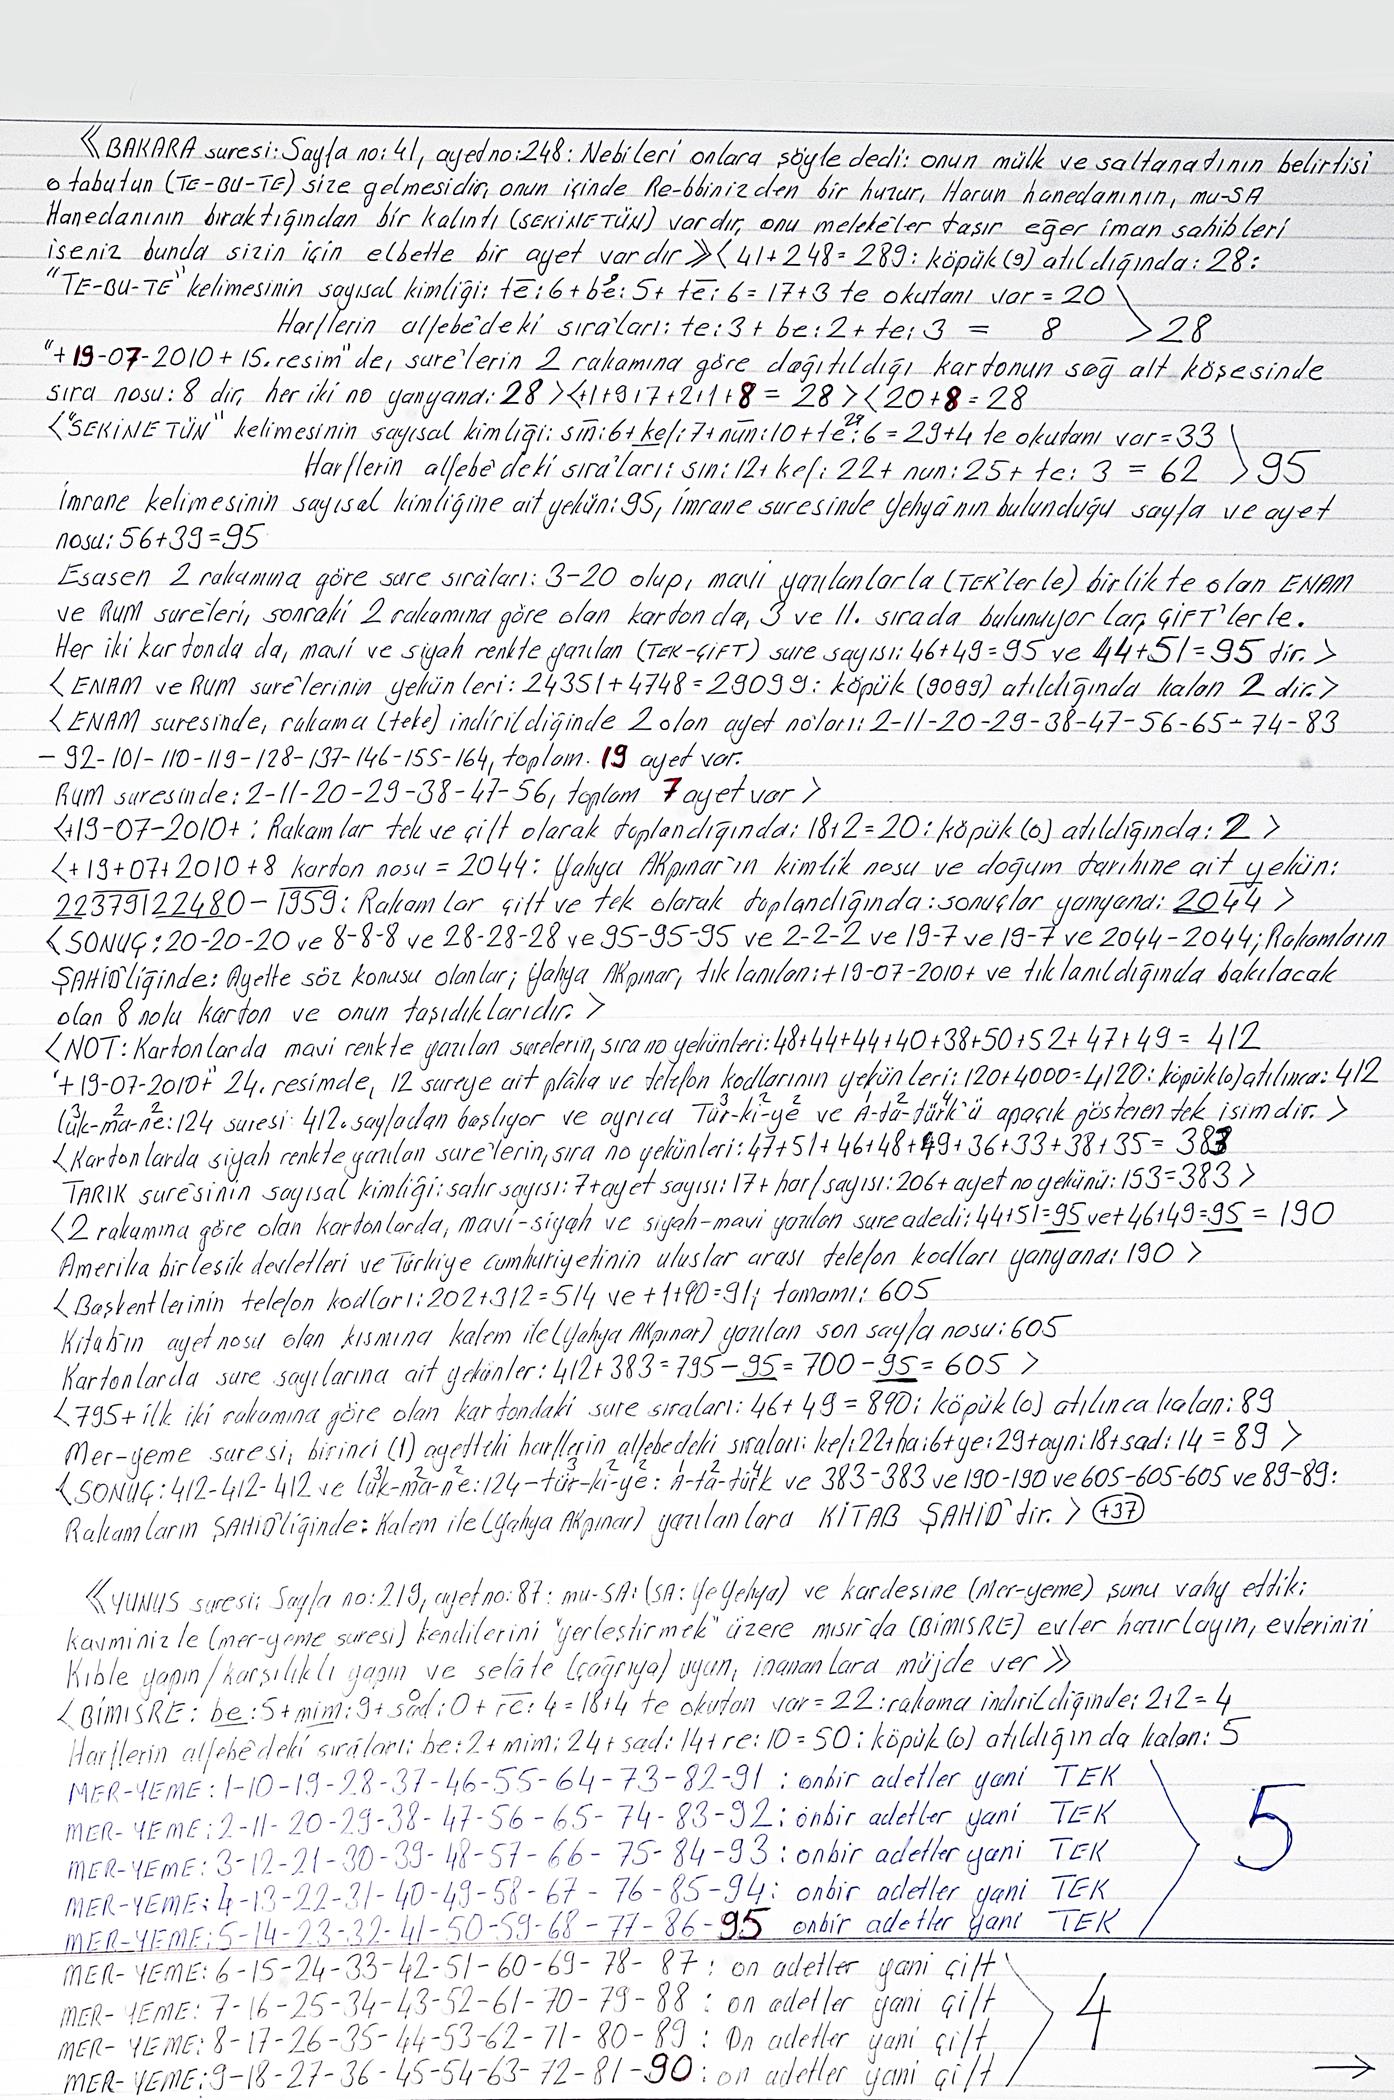 《BAKARA suresi: Sayfa no: 41, ayet no: 248: Nebileri onlara şöyle dedi: onun mülk ve saltanatının belirtisi
o tabutun (TE-BU-TE) size gelmesidir, onun içinde Re-bbinizden bir huzur, Harun hanedanının, mu-SA
Hanedanının bıraktığından bir kalıntı (SEKİNETÜN) vardır, onu melekeler taşır eğer iman sahibleri
iseniz bunda sizin için elbette bir ayet vardır》〈41+248=289: köpük(9) atıldığında: 28:
"TE-BU-TE" kelimesinin sayısal kimliği: te: 6+be: 5+ te: 6=17+3 te okutanı var=20
Harflerin alfebedeki sıraları: te:3+be:2+te:3 = 8 〉28
"+19-07-2010+15.resim"de, sure'lerin 2 rakamına göre dağıtıldığı kartonun sağ alt köşesinde
sıra nosu: 8 dir, her iki no yanyana: 28〉〈+1+9+7+2+1+8=28〉〈20+8=28
〈"SEKİNETÜN" kelimesinin sayısal kimliği: sin: 6+kef:7+nun:10+te:6=29+4 te okutanı var=33
Harflerin alfebe'deki sıra'ları: sin: 12+ kef: 22+ nun: 25+ te: 3 = 62 〉95
İmrane kelimesinin sayısal kimliğine ait yekün: 95, İmrane suresinde Yehya'nın bulunduğu sayfa ve ayet
nosu: 56+39=95
Esasen 2 rakamına göre sure sıraları: 3-20 olup, mavi yazılanlarla (TEK'lerle) birlikte olan ENAM
ve RUM sureleri, sonraki 2 rakamına göre olan kartonda, 3 ve 11. sırada bulunuyorlar, ÇİFT'lerle.
Her iki kartonda da, mavi ve siyah renkte yazılan (TEK-ÇİFT) sure sayısı: 46+49=95 ve 44+51=95 dir.〉
〈ENAM ve RUM sure'lerinin yekünleri: 24351+4748=29099: köpük (9099) atıldığında kalan 2 dir.〉
〈ENAM suresinde, rakama (teke) indirildiğinde 2 olan ayet no'ları: 2-11-20-29-38-47-56-65-74-83
-92-101-110-119-128-137-146-155-164, toplam. 19 ayet var.
Rum suresinde: 2-11-20-29-38-47-56, toplam 7 ayet var〉
〈+19-07-2010+: Rakamlar tek ve çift olarak toplandığında: 18+2=20: köpük(0) atıldığında: 2〉
〈+19+07+2010+8 karton nosu = 2044: Yahya AKpınar'ın kimlik nosu ve doğum tarihine ait yekün:
22379122480-1959: Rakamlar çift ve tek olarak toplandığında: sonuçlar yanyana: 2044〉
〈SONUÇ: 20-20-20 ve 8-8-8 ve 28-28-28 ve 95-95-95 ve 2-2-2 ve 19-7 ve 19-7 ve 2044-2044; Rakamların
ŞAHİD'liğinde: Ayette söz konusu olanlar; Yahya AKpınar, tıklanılan: +19-07-2010+ ve tıklanıldığında bakılacak
olan 8 nolu karton ve onun taşıdıklarıdır.〉
〈NOT: Kartonlarda mavi renkte yazılan surelerin, sıra no yekünleri: 48+44+44+40+38+50+52+47+49= 412
"+19-07-2010+" 24. resimde, 12 sureye ait plâka ve telefon kodlarının yekünleri: 120+4000=4120: köpük(0) atılınca: 412
lük-ma-ne: 124 suresi 412. sayfadan başlıyor ve ayrıca Tür-ki-ye ve A-ta-türk'ü apaçık gösteren tek isimdir.〉
〈Kartonlarda siyah renkte yazılan sure'lerin, sıra no yekünleri: 47+51+46+48+49+36+33+38+35=383
TARIK suresinin sayısal kimliği: satır sayısı: 7+ayet sayısı: 17+harf sayısı: 206+ayet no yekünü: 153=383〉
〈2 rakamına göre olan kartonlarda, mavi-siyah ve siyah-mavi yazılan sure adedi: 44+51=95 ve 46+49=95 = 190
Amerika birleşik devletleri ve Türkiye cumhuriyetinin uluslar arası telefon kodları yanyana: 190〉
〈Başkentlerinin telefon kodları: 202+312=514 ve +1+90=91; tamamı: 605
Kitab'ın ayet nosu olan kısmına kalem ile (Yahya AKpınar) yazılan son sayfa nosu: 605
Kartonlarda sure sayılarına ait yekünler: 412+383=795-95=700-95=605〉
〈795+ilk iki rakamına göre olan kartondaki sure sıraları: 46+49=890: köpük(0) atılınca kalan: 89
Mer-yeme suresi, birinci (1) ayetteki harflerin alfebedeki sıraları: kef:22+ha:6+ye:29+ayn:18+sad:14=89〉
〈SONUÇ: 412-412-412 ve lük-ma-ne: 124-tür-ki-ye: A-ta-türk ve 383-383 ve 190-190 ve 605-605-605 ve 89-89:
Rakamların ŞAHİD'liğinde: Kalem ile (Yahya AKpınar) yazılanlara KİTAB ŞAHİD'dir.〉 +37
《YUNUS suresi: Sayfa no: 219, ayet no: 87: mu-SA: (SA: Ye Yehya) ve kardeşine (Mer-yeme) şunu vahy ettik:
kavminizle (mer-yeme suresi) kendilerini "yerleştirmek" üzere mısır'da (BİMISRE) evler hazırlayın, evlerinizi
Kıble yapın/karşılıklı yapın ve selâte (çağrıya) uyun, inananlara müjde ver》
〈BİMISRE: be: 5+mim: 9+sad: 0+re: 4=18+4 te okutan var=22: rakama indirildiğinde: 2+2=4
Harflerin alfebe'deki sıraları: be: 2+mim: 24+sad: 14+re: 10=50: köpük(0) atıldığında kalan: 5
MER-YEME: 1-10-19-28-37-46-55-64-73-82-91: onbir adetler yani TEK
MER-YEME: 2-11-20-29-38-47-56-65-74-83-92: onbir adetler yani TEK
MER-YEME: 3-12-21-30-39-48-57-66-75-84-93: onbir adetler yani TEK 5
MER-YEME: 4-13-22-31-40-49-58-67-76-85-94: onbir adetler yani TEK
MER-YEME: 5-14-23-32-41-50-59-68-77-86-95 onbir adetler yani TEK
MER-YEME: 6-15-24-33-42-51-60-69-78-87: on adetler yani çift
MER-YEME: 7-16-25-34-43-52-61-70-79-88: on adetler yani çift 4
MER-YEME: 8-17-26-35-44-53-62-71-80-89: On adetler yani çift
MER-YEME: 9-18-27-36-45-54-63-72-81-90: on adetler yani çift
→